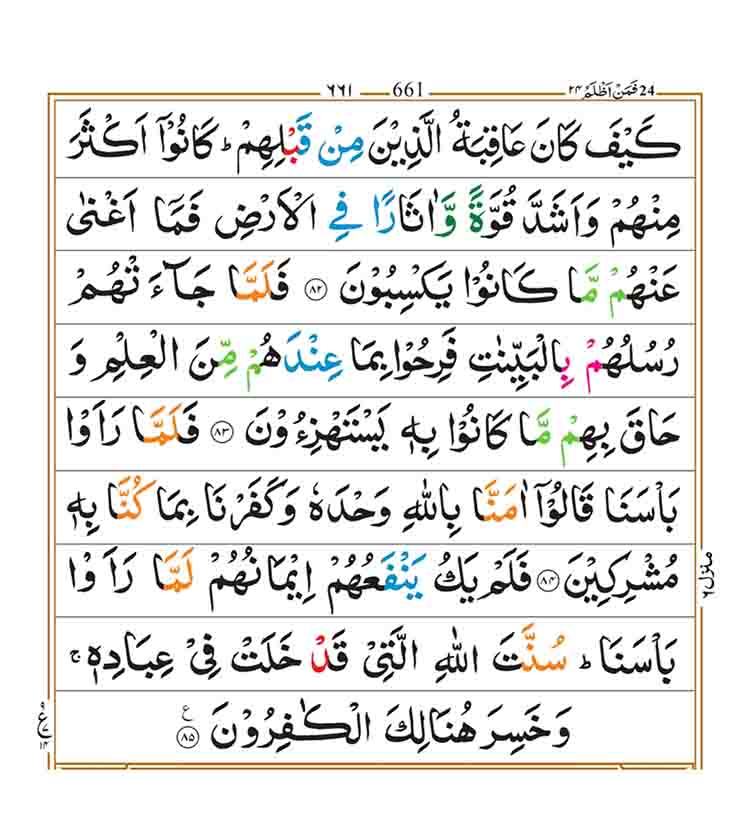 ٦٦١ 661 فَمَنْ اَظْلَمُ ٢٤ 24
كَيْفَ كَانَ عَاقِبَةُ الَّذِيْنَ مِنْ قَبْلِهِمْ ؕ كَانُوْۤا اَكْثَرَ
مِنْهُمْ وَاَشَدَّ قُوَّةً وَّاٰثَارًا فِي الْاَرْضِ فَمَاۤ اَغْنٰى
عَنْهُمْ مَّا كَانُوْا يَكْسِبُوْنَ ﴿٨٢﴾ فَلَمَّا جَآءَتْهُمْ
رُسُلُهُمْ بِالْبَيِّنٰتِ فَرِحُوْا بِمَا عِنْدَهُمْ مِّنَ الْعِلْمِ وَ
حَاقَ بِهِمْ مَّا كَانُوْا بِهٖ يَسْتَهْزِءُوْنَ ﴿٨٣﴾ فَلَمَّا رَاَوْا
بَاْسَنَا قَالُوْۤا اٰمَنَّا بِاللّٰهِ وَحْدَهٗ وَكَفَرْنَا بِمَا كُنَّا بِهٖ
مُشْرِكِيْنَ ﴿٨٤﴾ فَلَمْ يَكُ يَنْفَعُهُمْ اِيْمَانُهُمْ لَمَّا رَاَوْا
بَاْسَنَا ؕ سُنَّتَ اللّٰهِ الَّتِيْ قَدْ خَلَتْ فِيْ عِبَادِهٖ ۚ
وَخَسِرَ هُنَالِكَ الْكٰفِرُوْنَ ﴿٨٥﴾ ع
منزل ٦
٩
ع ٧
١٤